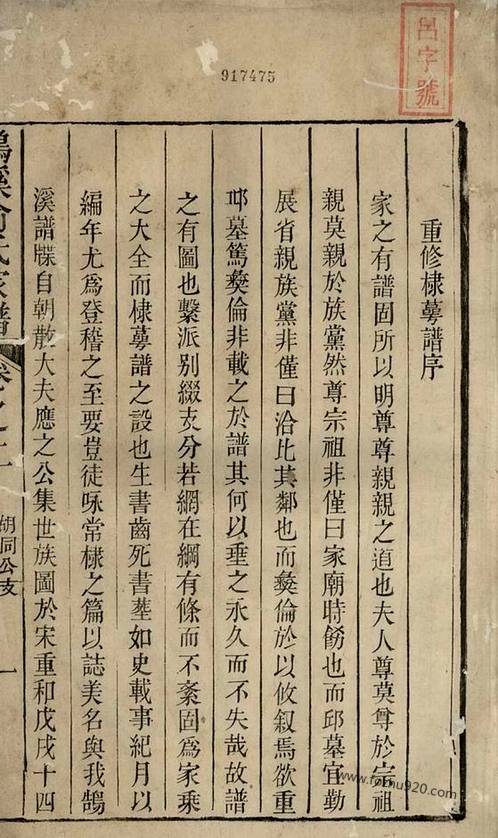 呂字號
917475
重修棣萼譜序
家之有譜固所以明尊尊親親之道也夫人尊莫尊於宗祖
親莫親於族黨然尊宗祖非僅曰家廟時餝也而邱墓宜勤
展省親族黨非僅曰洽比其鄰也而彜倫於以攸叙焉欲重
邱墓篤彜倫非載之於譜其何以垂之永久而不失哉故譜
之有圖也繫派别綴支分若網在綱有條而不紊固爲家乘
之大全而棣萼譜之設也生書齒死書塟如史載事紀月以
編年尤爲登稽之至要豈徒咏常棣之篇以誌美名與我鵠
溪譜牒自朝散大夫應之公集世族圖於宋重和戊戌十四
鵠溪俞氏家譜
卷之十二
胡同公支
一
www.fomu920.com